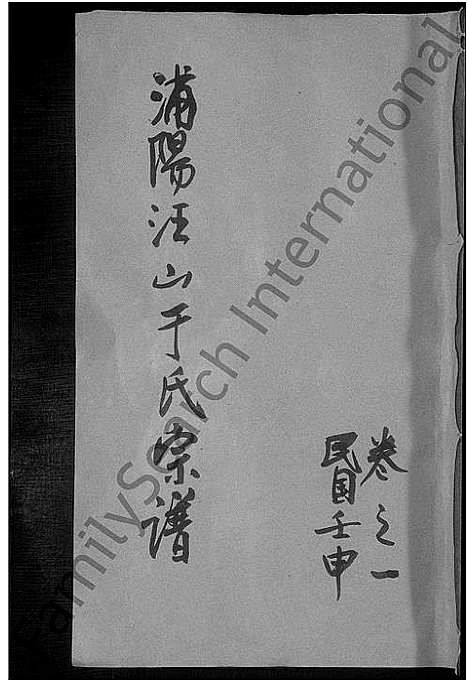 卷之一
民国壬申
浦陽汪山于氏宗譜
FamilySearch International